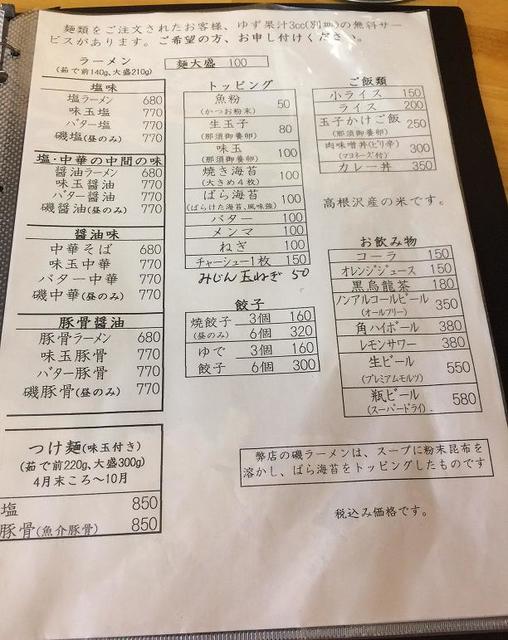 麺類をご注文されたお客様、ゆず果汁3cc(別皿)の無料サー
ビスがあります。ご希望の方、お申し付けください。
ラーメン
(茹で前140g、大盛210g)
麺大盛 100
塩味
塩ラーメン 680
味玉塩 770
バター塩 770
磯塩(昼のみ) 770
塩・中華の中間の味
醤油ラーメン 680
味玉醤油 770
バター醤油 770
磯醤油(昼のみ) 770
醤油味
中華そば 680
味玉中華 770
バター中華 770
磯中華(昼のみ) 770
豚骨醤油
豚骨ラーメン 680
味玉豚骨 770
バター豚骨 770
磯豚骨(昼のみ) 770
つけ麺(味玉付き)
(茹で前220g、大盛300g)
4月末ころ～10月
塩 850
豚骨(魚介豚骨) 850
トッピング
魚粉 50
(かつお粉末)
生玉子 80
(那須御養卵)
味玉 100
(那須御養卵)
焼き海苔 100
(大きめ4枚)
ばら海苔 100
(ばらけた海苔、風味強)
バター 100
メンマ 100
ねぎ 100
チャーシュー1枚 150
みじん玉ねぎ 50
餃子
焼餃子 3個 160
(昼のみ) 6個 320
ゆで 3個 160
餃子 6個 300
ご飯類
小ライス 150
ライス 200
玉子かけご飯 250
(那須御養卵)
肉味噌丼(ピリ辛) 300
(マヨネーズ付)
カレー丼 350
高根沢産の米です。
お飲み物
コーラ 150
オレンジジュース 150
黒烏龍茶 180
ノンアルコールビール 350
(オールフリー)
角ハイボール 380
レモンサワー 380
生ビール 550
(プレミアムモルツ)
瓶ビール 580
(スーパードライ)
弊店の磯ラーメンは、スープに粉末昆布を
溶かし、ばら海苔をトッピングしたものです
税込み価格です。